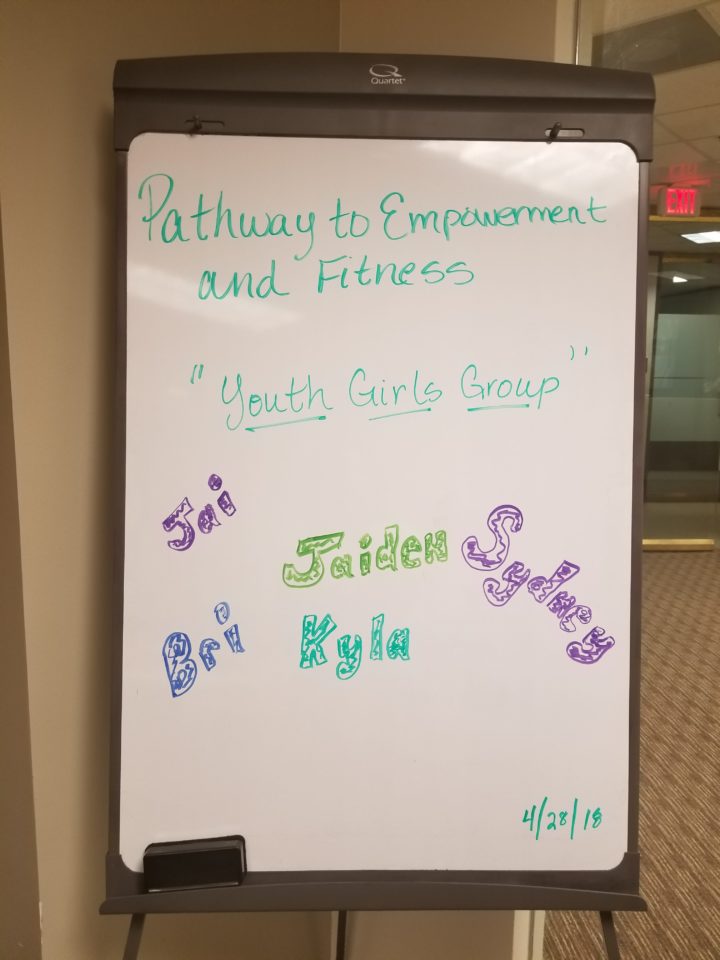 Quartet
EXIT
Pathway to Empowerment
and Fitness
"Youth Girls Group"
Jai
Jaiden
Sydney
Bri
Kyla
4/28/18